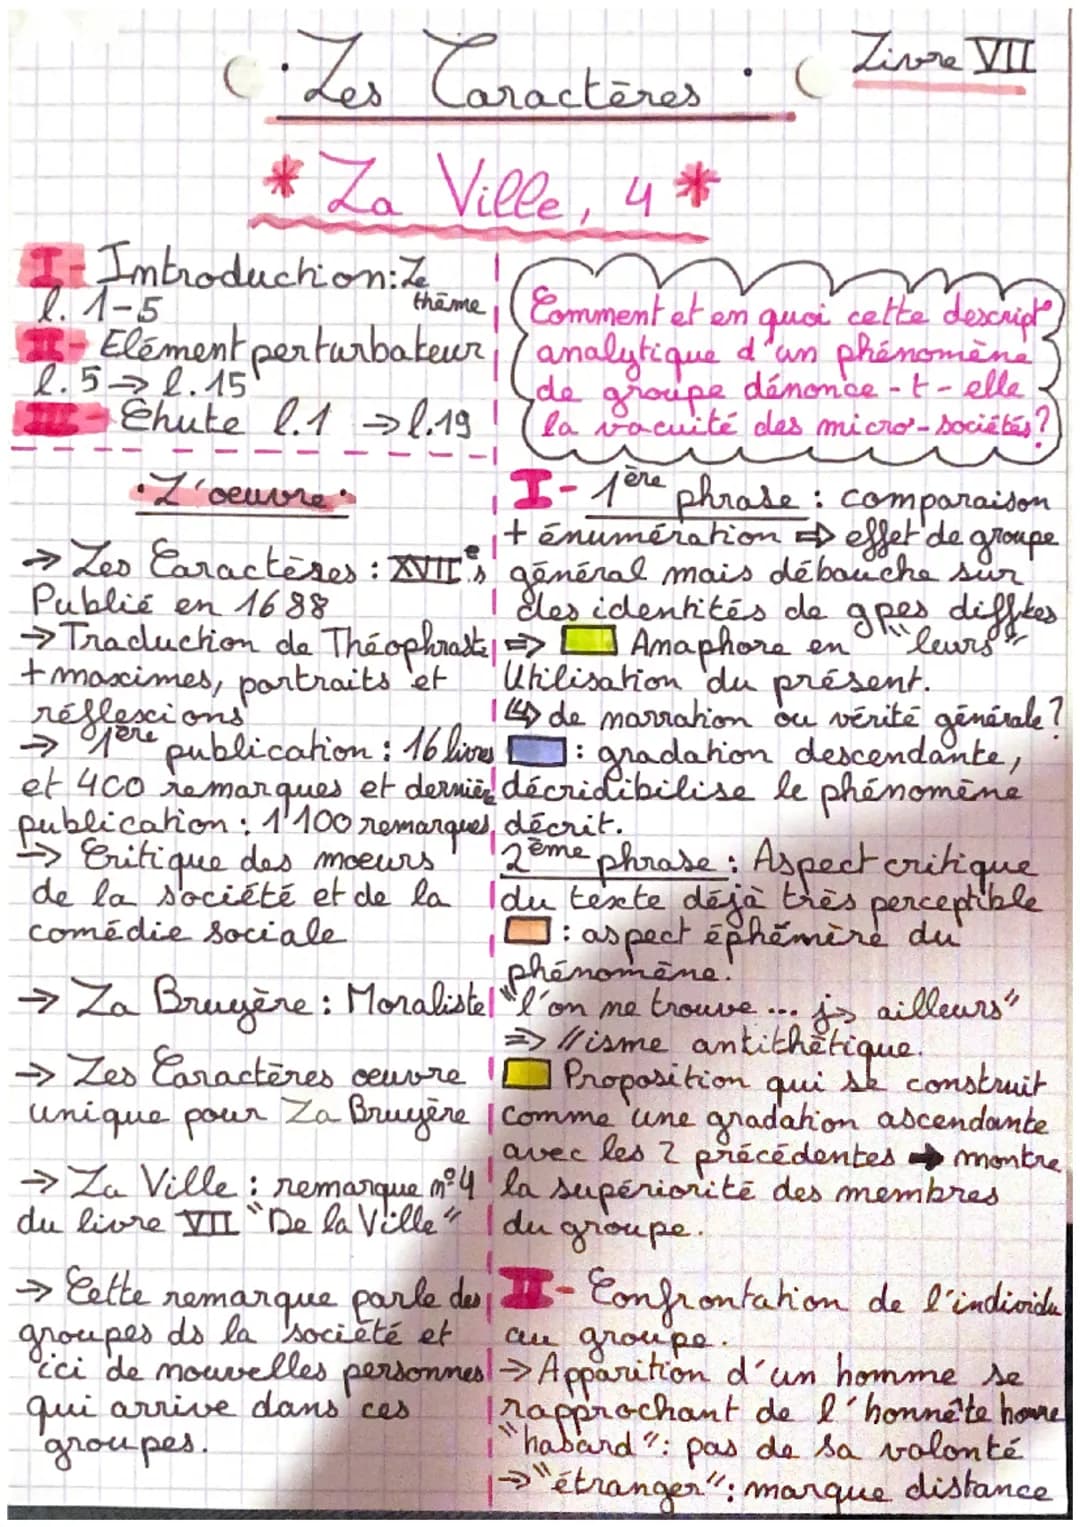 Les Caractères
Livre VII
* La Ville, 4 *
I- Introduction: Le thème
l. 1-5
II- Elément perturbateur
l. 5 → l. 15
III- Chute l.1 → l.19
Comment et en quoi cette descript°
analytique d'un phénomène
de groupe dénonce-t-elle
la vacuité des micro-sociétés?
• L'oeuvre •
→ Les Caractères : XVIIe s
Publié en 1688
→ Traduction de Théophraste
+ maximes, portraits et
réflexions
→ 1ère publication : 16 livres
et 400 remarques et dernière
publication : 1'100 remarques
→ Critique des moeurs
de la société et de la
comédie sociale
→ La Bruyère : Moraliste
→ Les Caractères oeuvre
unique pour La Bruyère
→ La Ville : remarque n°4
du livre VII "De la Ville"
→ Cette remarque parle des
groupes ds la société et
ici de nouvelles personnes
qui arrive dans ces
groupes.
I- 1ère phrase : comparaison
+ énumération ⇒ effet de groupe
général mais débouche sur
des identités de gpes difftes
⇒ Anaphore en "leurs"
Utilisation du présent.
↳ de narration ou vérité générale?
: gradation descendante,
décridibilise le phénomène
décrit.
2ème phrase : Aspect critique
du texte déjà très perceptible
: aspect éphémère du
phénomène.
"l'on ne trouve ... js ailleurs"
⇒ //isme antithétique.
Proposition qui se construit
comme une gradation ascendante
avec les 2 précédentes → montre
la supériorité des membres
du groupe.
II- Confrontation de l'individu
au groupe.
→ Apparition d'un homme se
rapprochant de l'honnête homme
"hasard" : pas de sa volonté
→ "étranger" : marque distance